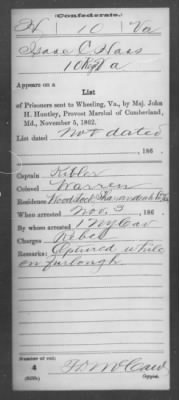 Confederate.
H 10 Va
Isaac C. Haas
10 Va
Appears on a
List
of Prisoners sent to Wheeling, Va., by Maj. John
H. Huntley, Provost Marshal of Cumberland,
Md., November 5, 1862.
List dated not dated
, 186
Captain Kibler
Colonel Warren
Residence Woodstock Shenandoah
When arrested Nov. 3, 186
By whom arrested 1 NY Cav
Charges Rebel
Remarks: Captured while
on furlough.
Number of roll:
4
(639b) Copyist.